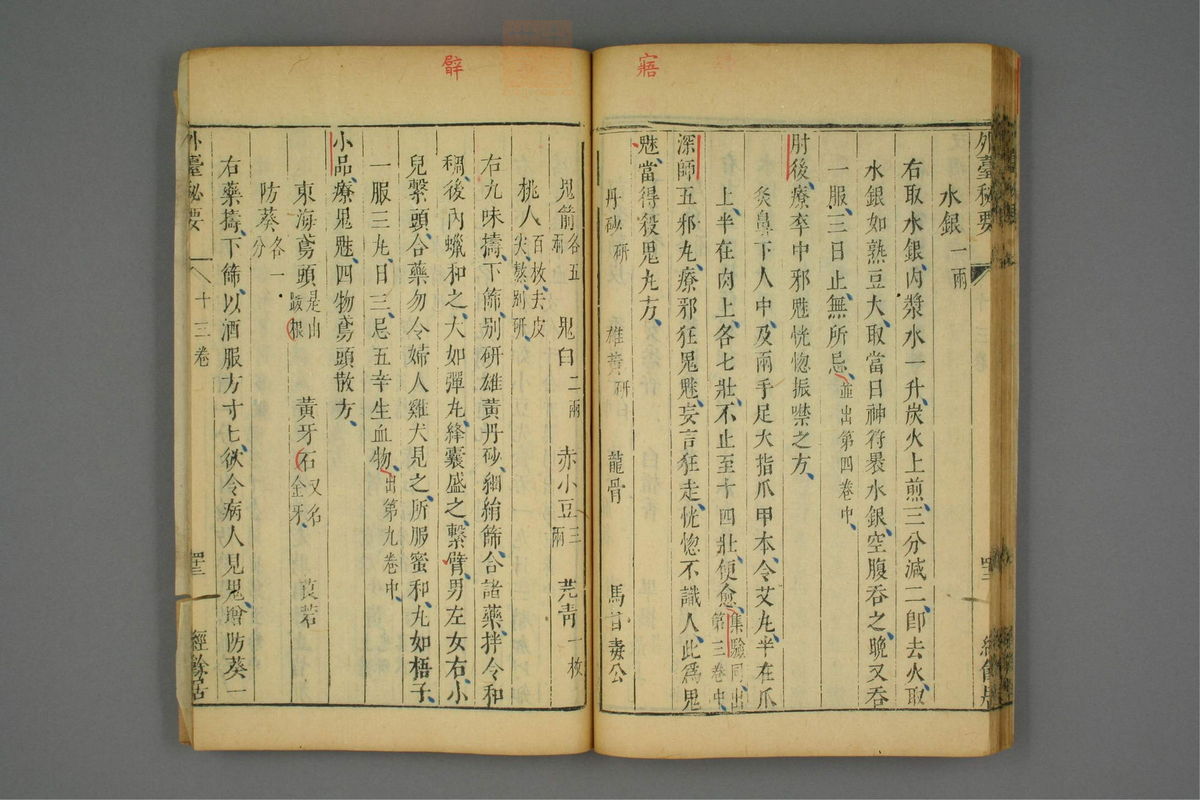 寤
外臺祕要
四三
水銀一兩
右取水銀内漿水一升炭火上煎三分減二即去火取
水銀如熟豆大取當日神符裹水銀空腹吞之晚又吞
一服三日止無所忌並出第四卷中
肘後療卒中邪魅恍惚振噤之方
灸鼻下人中及兩手足大指爪甲本令艾丸半在爪
上半在肉上各七壯不止至十四壯便愈集驗同出第三卷中
深師五邪丸療邪狂鬼魅妄言狂走恍惚不識人此為鬼
魅當得殺鬼丸方
丹砂研 雄黃研 龍骨 馬目毒公
鬼箭各五兩 鬼臼二兩 赤小豆三兩 芫青一枚
桃人百枚去皮尖熬別研
右九味擣下篩別研雄黃丹砂細絹篩合諸藥拌令和
稠後内蠟和之大如彈丸絳囊盛之繫臂男左女右小
兒繫頭合藥勿令婦人雞犬見之所服蜜和丸如梧子
一服三丸日三忌五辛生血物出第九卷中
小品療鬼魅四物鳶頭散方
東海鳶頭是由跋根 黃牙石又名金牙 莨若
防葵各一分
右藥擣下篩以酒服方寸匕欲令病人見鬼增防葵一
外臺秘要
十三卷
四三
經餘居
臂